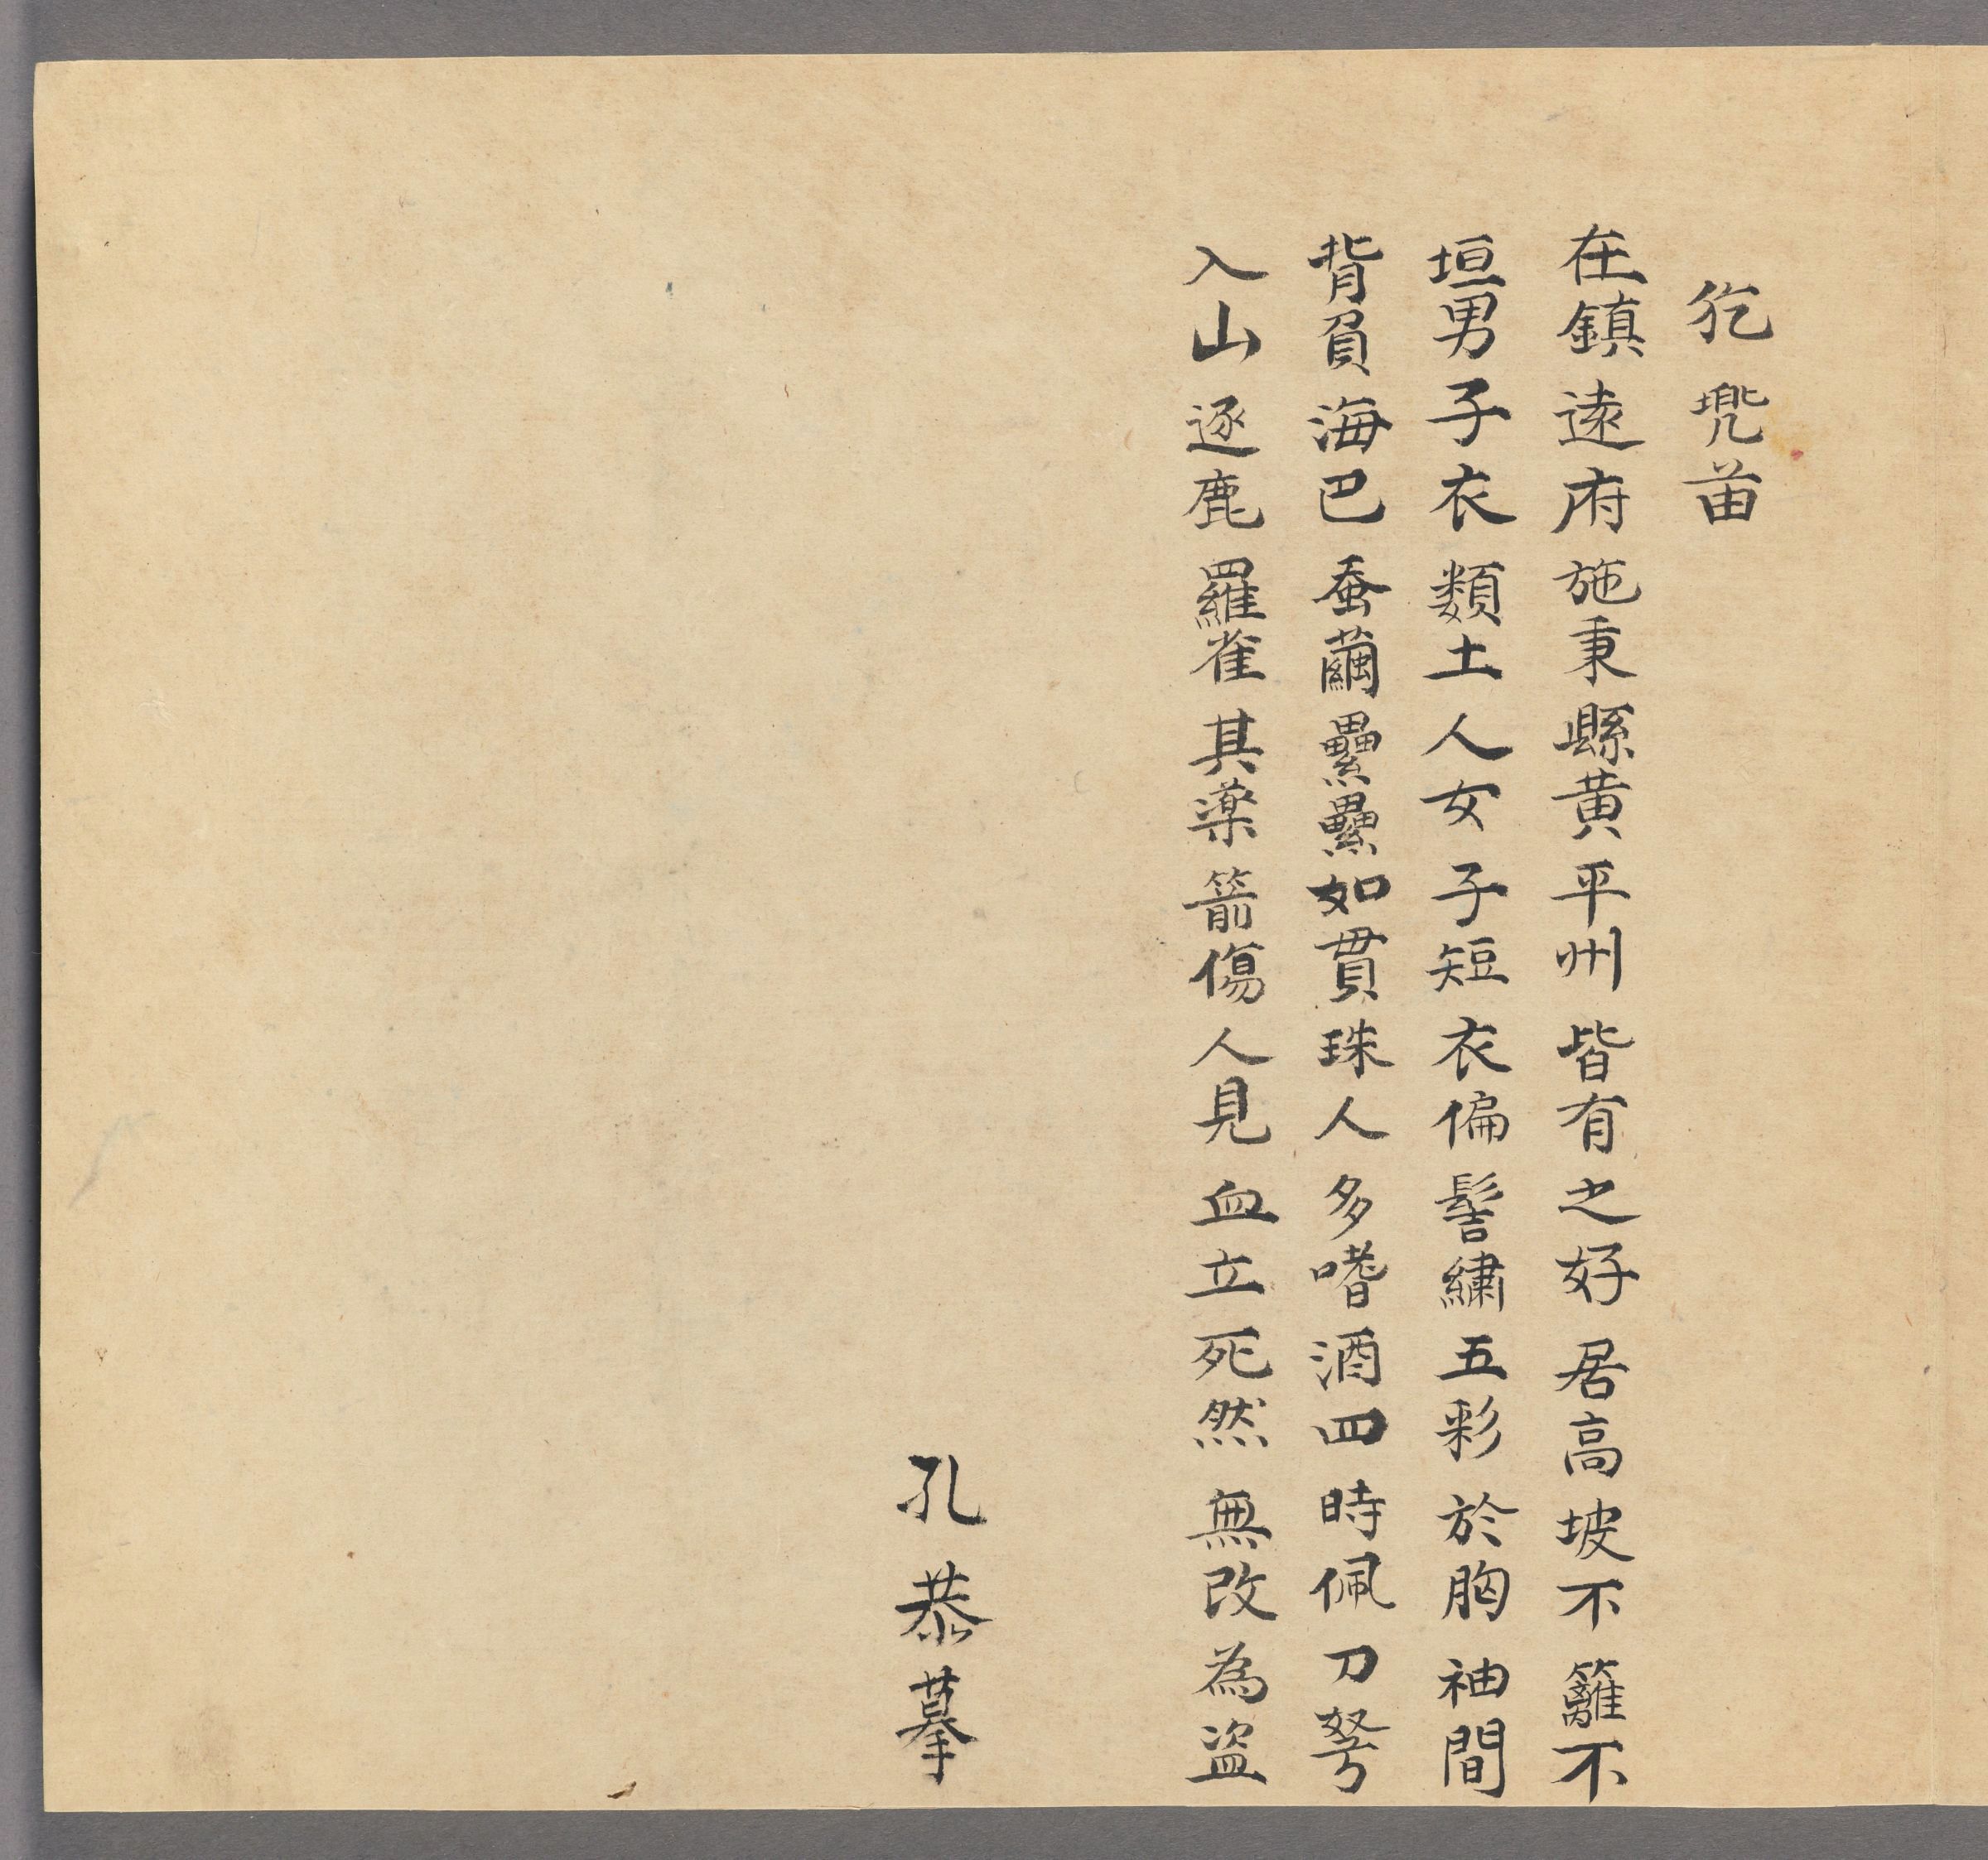 犵兠苗
在鎮遠府施秉縣黄平州皆有之好居高坡不籬不
垣男子衣類土人女子短衣偏髻繡五彩於胸袖間
背負海巴蚕繭纍纍如貫珠人多嗜酒四時佩刀弩
入山逐鹿羅雀其藥箭傷人見血立死然無敢為盜
孔恭摹